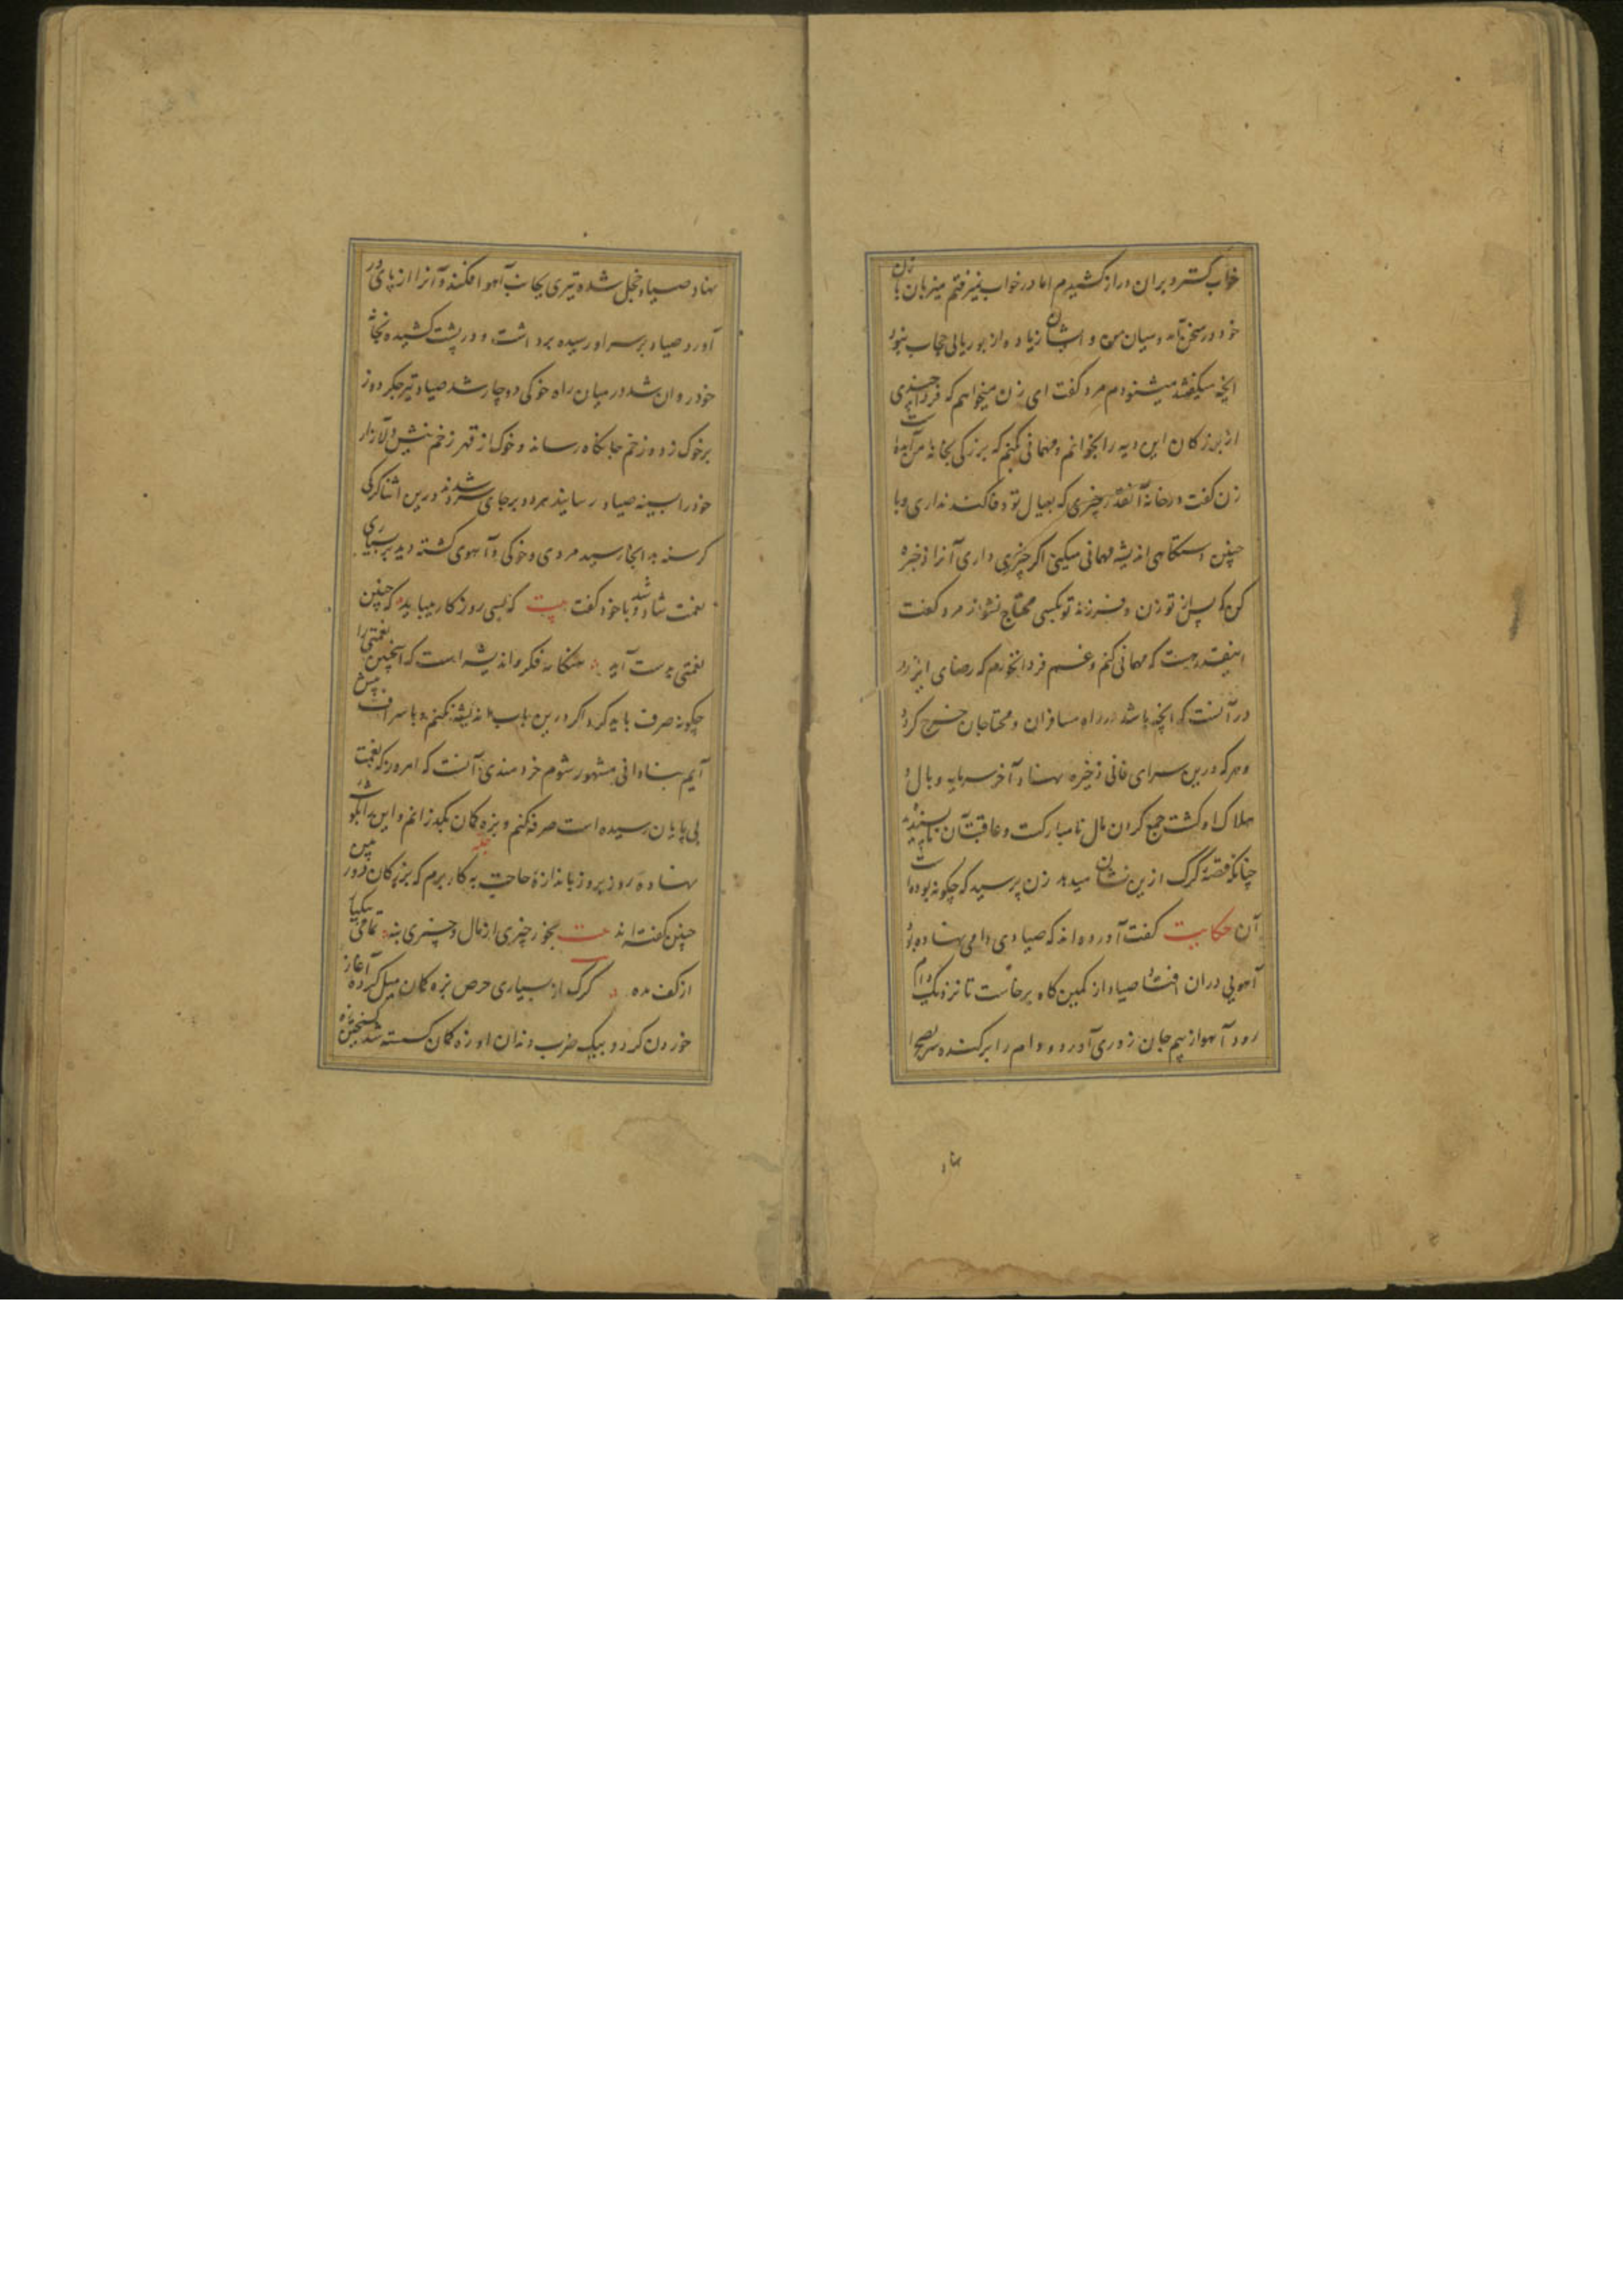 خواب گسترد بران دراز کشیدم اما در خواب نمیرفتم میزبان با زن
خود در سخن آمد و میان من و ایشان زیاده از بوریایی حجاب نبود
آنچه میگفتند میشنودم مرد گفت ای زن میخواهم که فردا چندی
از بزرگان این دیه را بخوانم و مهمانی کنم که بزرگی بخانه من آمده است
زن گفت در خانه آنقدر چیزی که بعیال تو وفا کند نداری و با
چنین دستگاهی اندیشه مهمانی میکنی اگر چیزی داری آنرا ذخیره
کن که پس از تو زن و فرزند تو بکسی محتاج نشوند مرد گفت
اینقدر هست که مهمانی کنم و غم فردا نخورم که رضای ایزد
در آنست که آنچه باشد در راه مسافران و محتاجان خرج کرد
و هرکه درین سرای فانی ذخیره نهاد آخر سرمایه وبال و
هلاک او گشت جمع کردن مال نامبارکست و عاقبت آن ناپسندیده
چنانکه قصه گرگ ازین نشان میدهد زن پرسید که چگونه بوده است
آن حکایت گفت آورده اند که صیادی دامی نهاده بود
آهویی دران افتاد صیاد از کمین گاه برخاست تا نزدیک دام
رود آهو از بیم جان زوری آورد و دام را برکنده سر بصحرا
نهاد
نهاد صیاد خجل شده تیری بجانب آهو افکند و آنرا از پای در
آورد صیاد بر سر او رسیده برداشت و در پشت کشیده بخانه
خود روان شد در میان راه خوکی دوچار شد صیاد تیر جگر دوز
بر خوک زد و زخم جانکاه رساند و خوک از قهر زخم نیش دلازار
خود را بسینه صیاد رسانید هر دو بر جای سرد شدند درین اثنا گرگی
گرسنه به آنجا رسید مردی و خوکی و آهوی کشته دید بر بسیاری
نعمت شاد شد و با خود گفت بیت که بسی روزگار میباید که چنین
نعمتی بدست آید هنگام فکر و اندیشه است که اینچنین نعمتی را
چگونه صرف باید کرد اگر درین باب اندیشه نکنم و با سراف پیش
آیم بنادانی مشهور شوم خردمندی آنست که امروز که نعمت
بی پایان رسیده است صرفه کنم و بزه کمان بگذرانم و این
نهاده روز بروز باندازه حاجت به کار برم که بزرگان
چنین گفته اند بیت بخور چیزی از مال و چیزی بنه تمامی بیکبار
از کف مده گرگ از بسیاری حرص بزه کمان میل کرده آغاز
خوردن کرد و بیک ضرب دندان او زه کمان گسسته شد